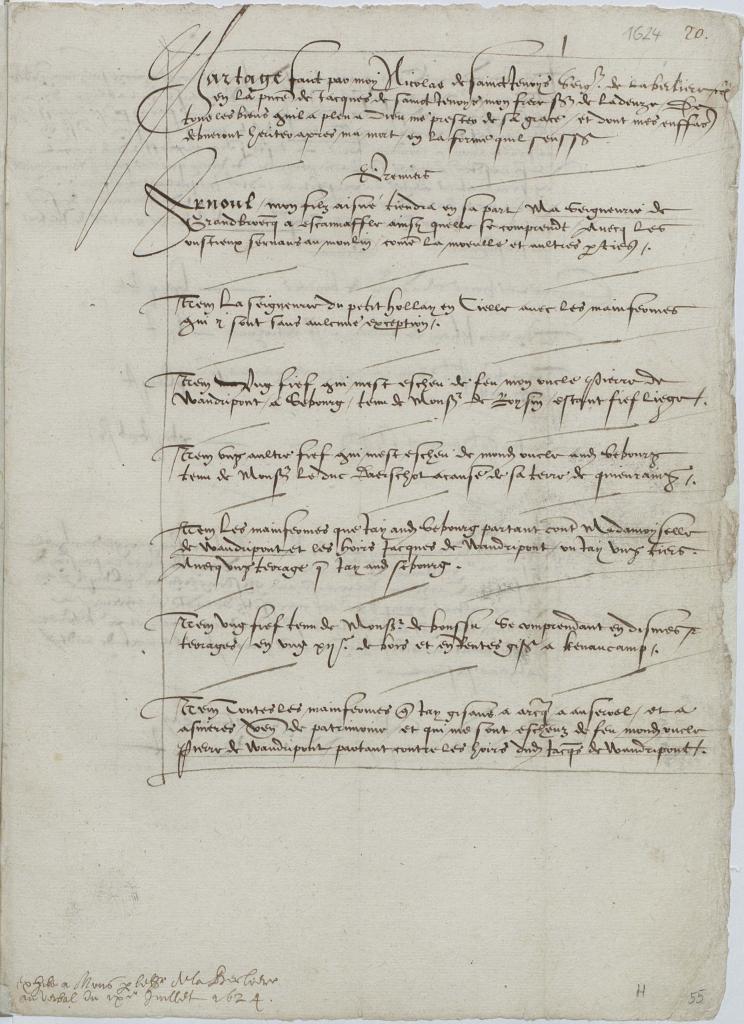 1624 20.
Partage faict par moy Nicolas de Sainct Jenoys Seigr. de la berliere
en la pnce de Jacques de Sainct Jenoys mon frere Sr. de Ladeuze De
tous les biens quil a pleu a Dieu me prester de sa grace et dont mes enffas
debveront heriter apres ma mort en la forme quil sensst
Premiers
Arnoul mon filz aisne tiendra en sa part Ma Seigneurie de
Grandbroecq a escainaffle ainsy quelle se comprend Avecq les
oustieux servans au moulin come la moeulle et aultres pties.
Item La seigneurie du petit hollay en Cielle avec les mainfermes
qui y sont sans aulcune exception.
Item Ung fief qui mest escheu de feu mon oncle Pierre de
Wandripont a Sebourg tenu de Monsr. de Roysin estant fief liege.
Item ung aultre fief qui mest escheu de mond oncle aud Sebourg
tenu de Monsr. le duc Darschot a cause de sa terre de quievraing.
Item les mainfermes que Jay aud Sebourg partant cont Madamoyselle
de Wandripont et les hoirs Jacques de Wandripont ou Jay ung tiers.
Avecq ung terage q Jay aud Sebourg.
Item ung fief tenu de Monsr. de boussu Se comprendant en dismes
terages en ung xije. de bois et en Rentes giss a kenaucamp.
Item Toutes les mainfermes q Jay gisans a arcq a anservel et a
asnieres ven de patrimoine et qui me sont escheuz de feu mond oncle
Pierre de Wandripont partant contre les hoirs dud Jacqs de Wandripont.
exhibe a Mons p de la Berliere
au verbal du Juillet 1624.
H 55